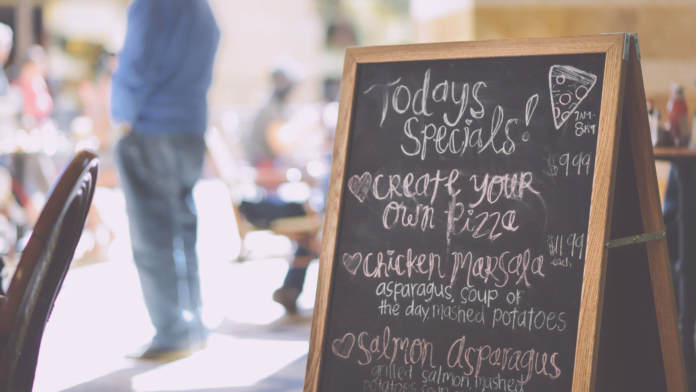 Todays
Specials!
7AM-
8PM
$9.99
CREATE YOUR
OWN PIZZA
$11.99
each
chicken Marsala
asparagus, soup of
the day, mashed potatoes
Salmon Asparagus
grilled salmon, mashed
potatoes